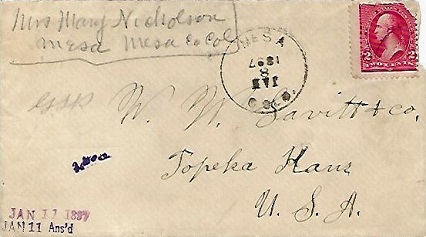 Mrs Mary Nicholson
Mesa Mesa Co Col
MESA
JAN
8
1897
COLO.
2 2
TWO CENTS
W. W. Gavitt & Co.
Topeka Kans
U. S. A.
JAN 11 1897
JAN 11 Ans'd